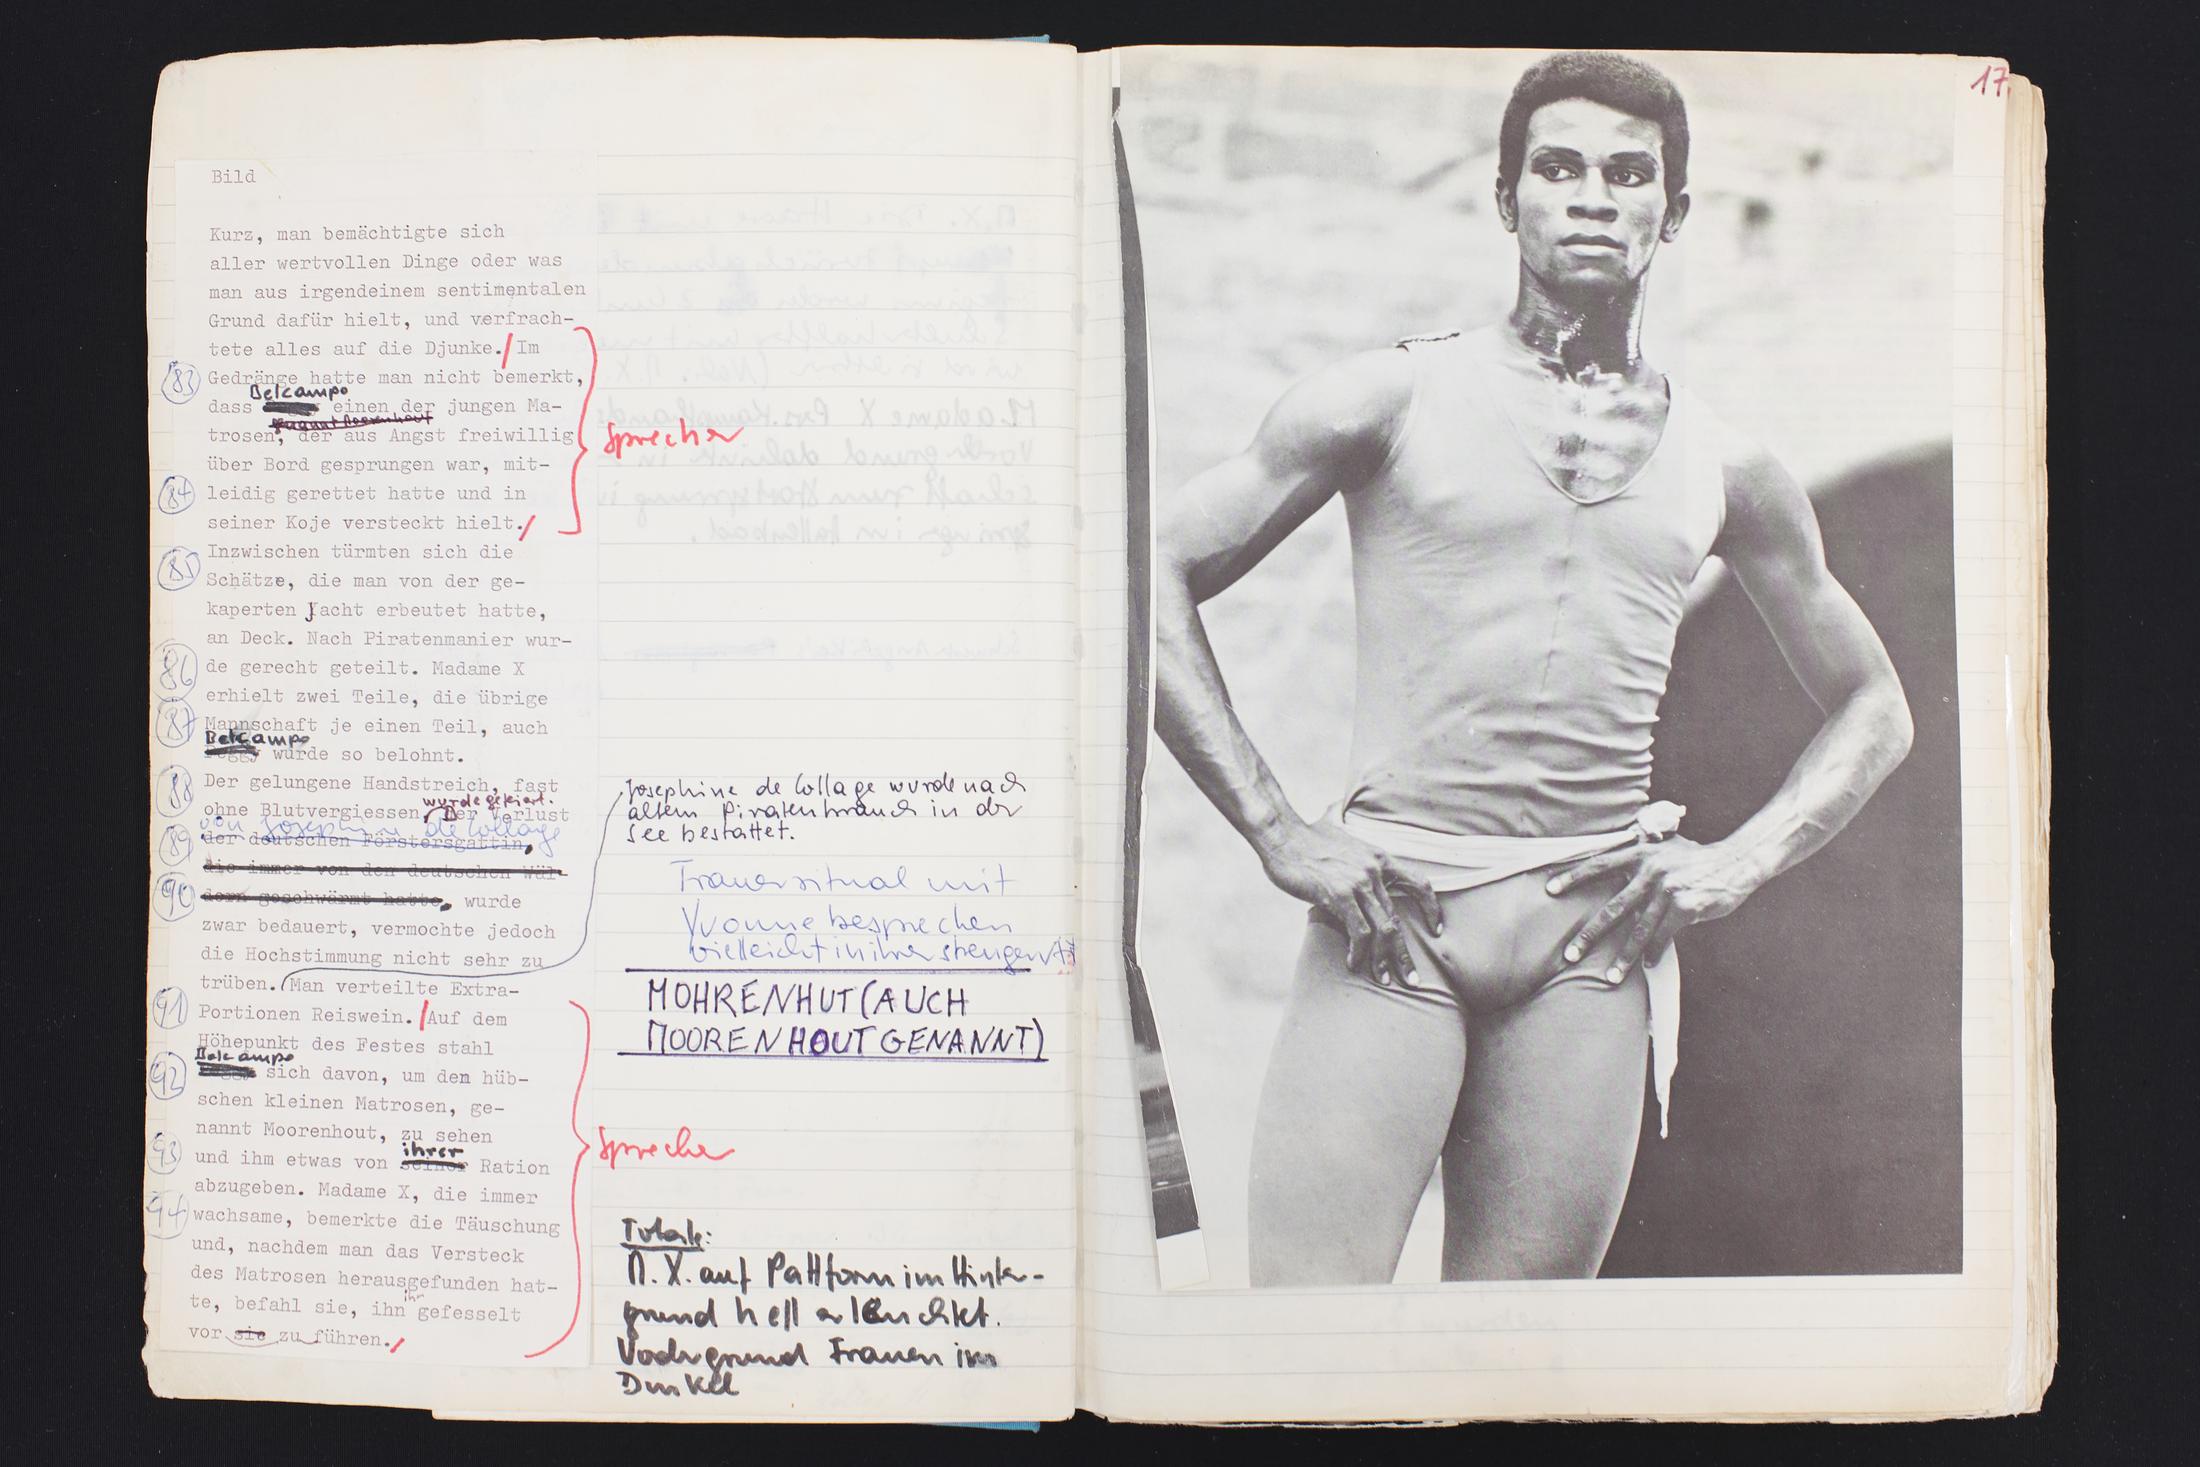 17.
Bild
Kurz, man bemächtigte sich
aller wertvollen Dinge oder was
man aus irgendeinem sentimentalen
Grund dafür hielt, und verfrach-
tete alles auf die Djunke./ Im
83 Gedränge hatte man nicht bemerkt,
Belcampo
dass einen der jungen Ma-
genannt Moorenhout
trosen, der aus Angst freiwillig
Sprecher
über Bord gesprungen war, mit-
84 leidig gerettet hatte und in
seiner Koje versteckt hielt./
Inzwischen türmten sich die
85 Schätze, die man von der ge-
kaperten Jacht erbeutet hatte,
an Deck. Nach Piratenmanier wur-
86 de gerecht geteilt. Madame X
erhielt zwei Teile, die übrige
87 Mannschaft je einen Teil, auch
Belcampo
Peggy wurde so belohnt.
88 Der gelungene Handstreich, fast
wurde gefeiert.
ohne Blutvergiessen, Der Verlust
von Josephine de Collage
89 der deutschen Förstersgattin,
die immer von den deutschen Wäl-
90 dern geschwärmt hatte, wurde
zwar bedauert, vermochte jedoch
die Hochstimmung nicht sehr zu
trüben. (Man verteilte Extra-
91 Portionen Reiswein. /Auf dem
Höhepunkt des Festes stahl
Belcampo
92 sich davon, um den hüb-
schen kleinen Matrosen, ge-
nannt Moorenhout, zu sehen
ihrer
93 und ihm etwas von seiner Ration
abzugeben. Madame X, die immer
94 wachsame, bemerkte die Täuschung
und, nachdem man das Versteck
des Matrosen herausgefunden hat-
ihr
te, befahl sie, ihn gefesselt
vor sie zu führen./
Josephine de Collage wurde nach
altem Piratenbrauch in der
See bestattet.
Trauerritual mit
Yvonne besprechen
vielleicht in ihrer strengen
MOHRENHUT (AUCH
MOORENHOUT GENANNT)
Sprecher
Totale:
M. X. auf Plattform im Hinter-
grund hell erleuchtet.
Vordergrund Frauen im
Dunkel